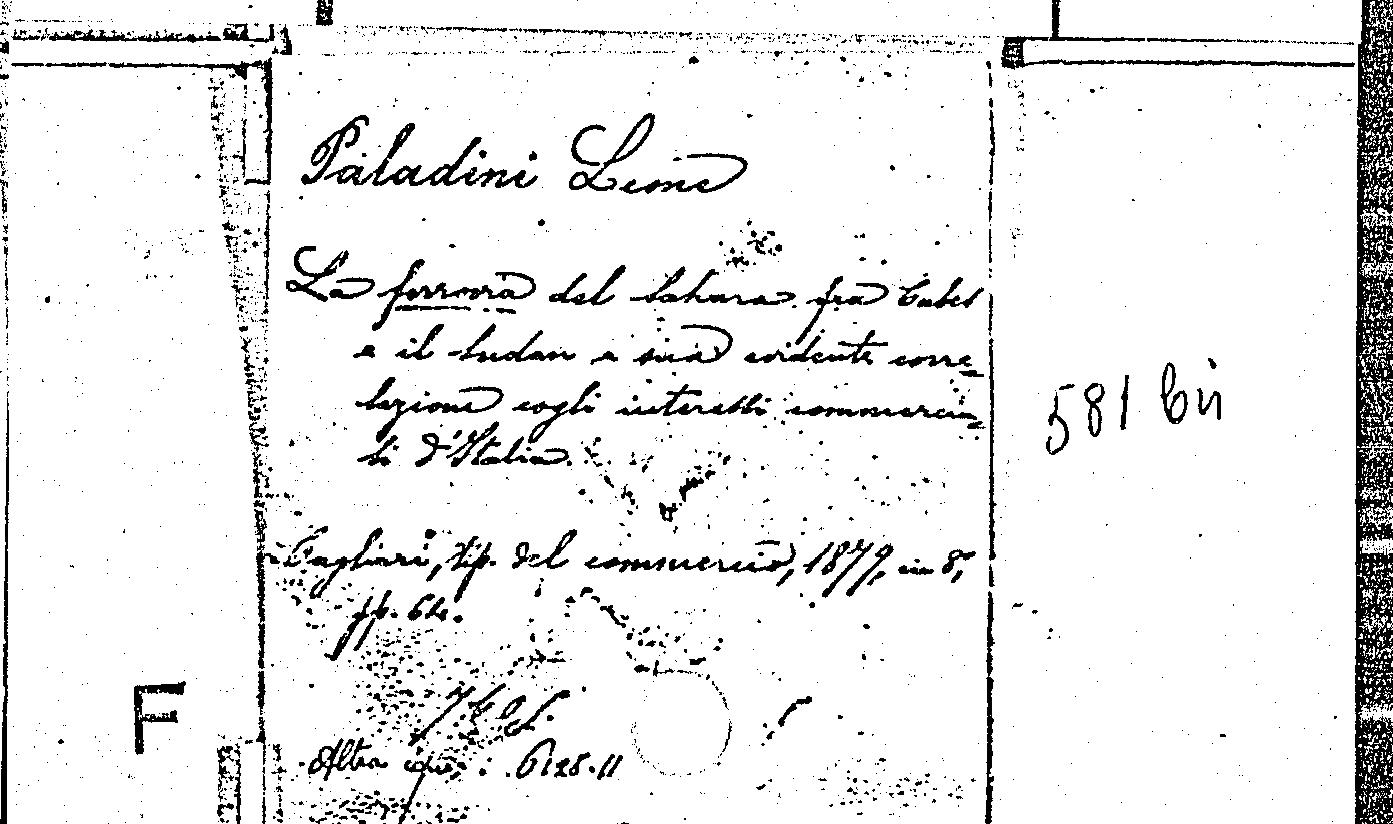 Paladini Leone
La ferrovia del Sahara fra Cabes
e il Sudan e sua evidente corre-
lazione cogli interessi commercia-
li d'Italia.
581 bis
Cagliari, tip. del commercio, 1879, in 8°,
pp. 64.
F
Altra copia: 6128.11